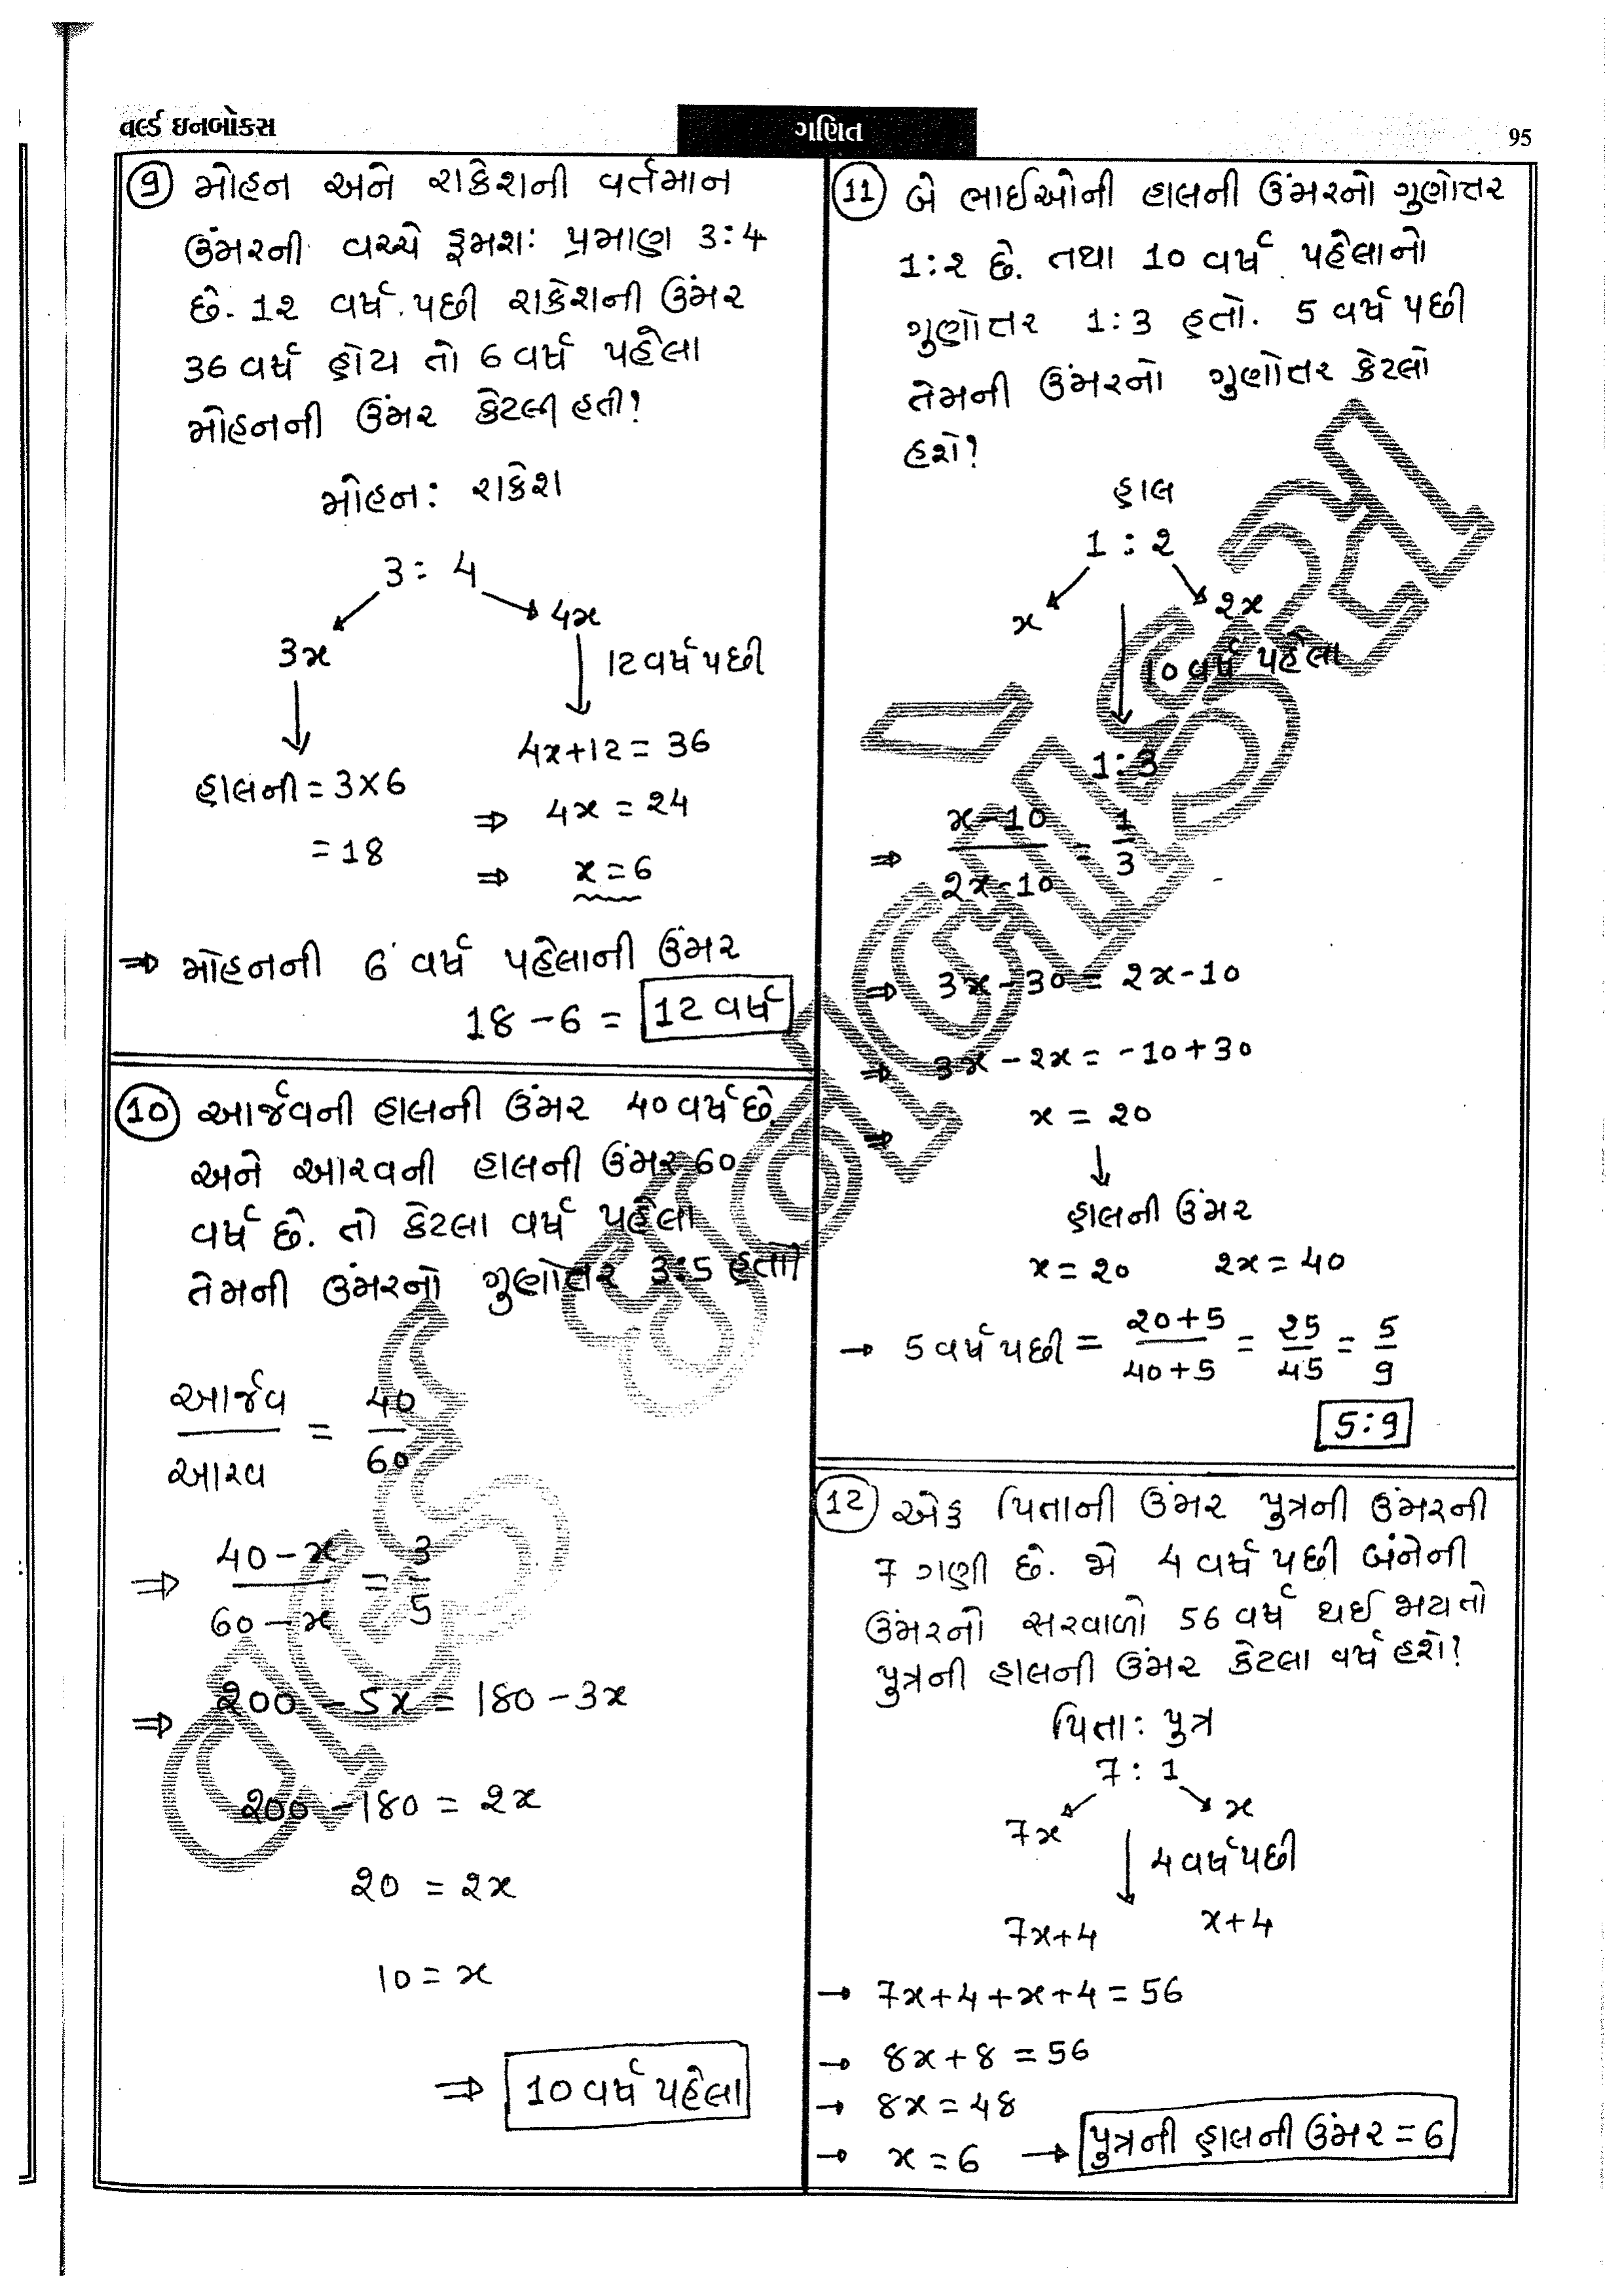 વર્લ્ડ ઇનબોક્સ
ગણિત
95
(9) મોહન અને રાકેશની વર્તમાન
ઉંમરની વચ્ચે ક્રમશઃ પ્રમાણ 3:4
છે. 12 વર્ષ પછી રાકેશની ઉંમર
36 વર્ષ હોય તો 6 વર્ષ પહેલા
મોહનની ઉંમર કેટલી હતી?
મોહન: રાકેશ
3 : 4
3x
4x
12 વર્ષ પછી
4x+12 = 36
હાલની = 3×6
⇒ 4x = 24
= 18
⇒ x = 6
⇒ મોહનની 6 વર્ષ પહેલાની ઉંમર
18 - 6 = 12 વર્ષ
(10) આર્જવની હાલની ઉંમર 40 વર્ષ છે.
અને આરવની હાલની ઉંમર 60
વર્ષ છે. તો કેટલા વર્ષ પહેલા
તેમની ઉંમરનો ગુણોત્તર 3:5 હતો?
આર્જવ / આરવ = 40 / 60
⇒ 40-x / 60-x = 3 / 5
⇒ 200 - 5x = 180 - 3x
200 - 180 = 2x
20 = 2x
10 = x
⇒ 10 વર્ષ પહેલા
(11) બે ભાઈઓની હાલની ઉંમરનો ગુણોત્તર
1:2 છે. તથા 10 વર્ષ પહેલાનો
ગુણોત્તર 1:3 હતો. 5 વર્ષ પછી
તેમની ઉંમરનો ગુણોત્તર કેટલો
હશે?
હાલ
1 : 2
x
2x
10 વર્ષ પહેલા
1:3
⇒ x-10 / 2x-10 = 1 / 3
⇒ 3x - 30 = 2x - 10
⇒ 3x - 2x = -10 + 30
⇒ x = 20
હાલની ઉંમર
x = 20 2x = 40
→ 5 વર્ષ પછી = 20+5 / 40+5 = 25 / 45 = 5 / 9
5:9
(12) એક પિતાની ઉંમર પુત્રની ઉંમરની
7 ગણી છે. જો 4 વર્ષ પછી બંનેની
ઉંમરનો સરવાળો 56 વર્ષ થઈ જાય તો
પુત્રની હાલની ઉંમર કેટલા વર્ષ હશે?
પિતા: પુત્ર
7 : 1
7x
x
4 વર્ષ પછી
7x+4
x+4
→ 7x+4+x+4 = 56
→ 8x+8 = 56
→ 8x = 48
→ x = 6 → પુત્રની હાલની ઉંમર = 6
વર્લ્ડ ઇનબોક્સ